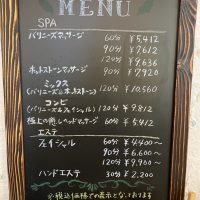 MENU
SPA
バリニーズマッサージ 60分 ¥5412
90分 ¥7612
120分 ¥9636
ホットストーンマッサージ 90分 ¥7920
ミックス
(バリニーズ&ホットストーン) 120分 ¥10,560
コンビ
(バリニーズ&フェイシャル) 120分 ¥9812
極上の癒しヘッドマッサージ 60分 ¥5412
エステ
フェイシャル 60分 ¥4,400〜
90分 ¥6,600〜
120分 ¥9,900〜
ハンドエステ 30分 ¥2,200
※税込価格での表示となっております